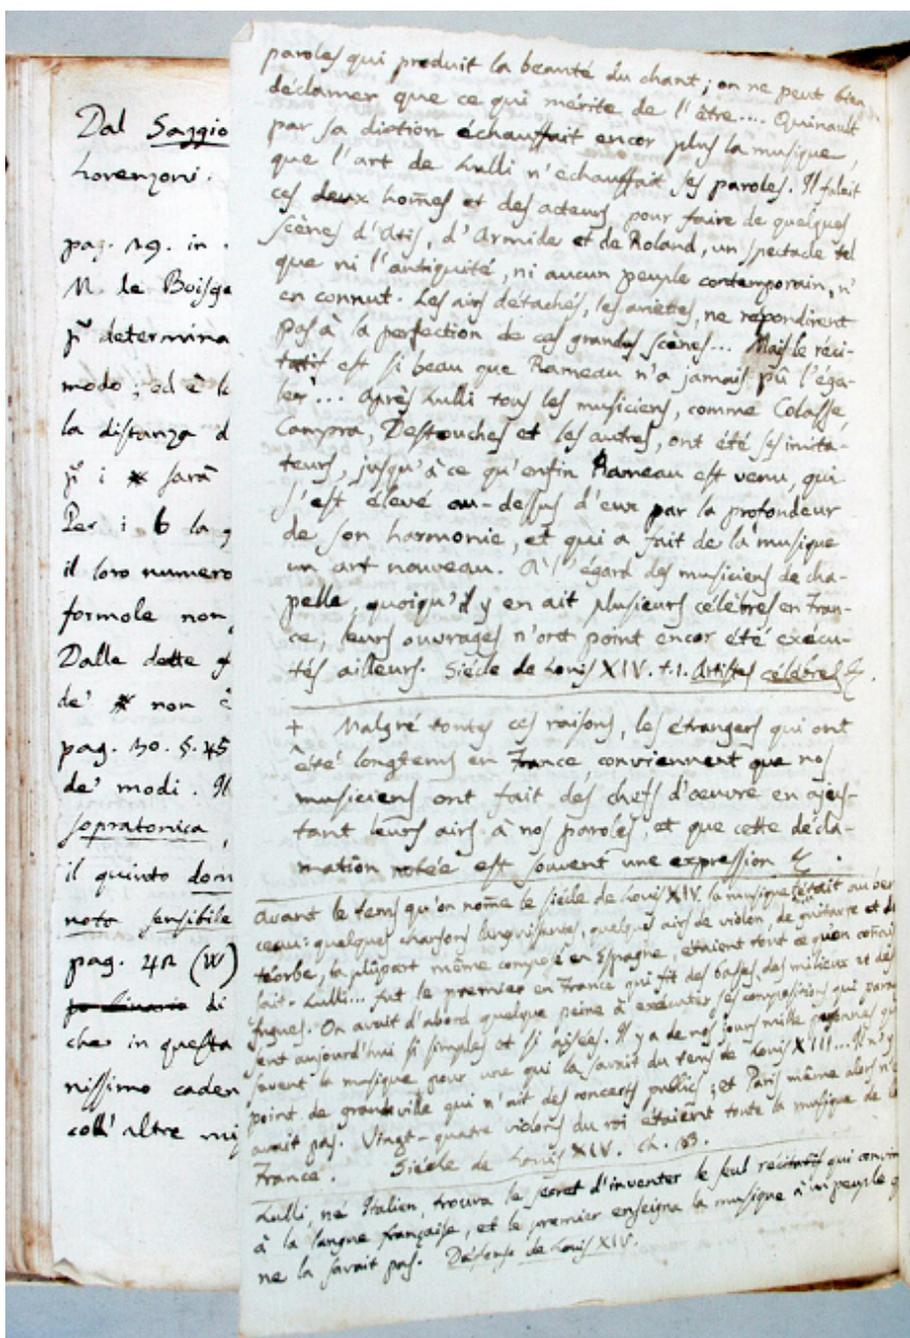 Dal Saggio
Lorenzoni.
pag. 19. in
M le Boisge
determina
modo; ed è l
la distanza d
i # sarà
Per i b la g
il loro numero
formole non
Dalle dette
de' # non è
pag. 30. §. 45
de' modi. Il
sopratonica,
il quinto dom
nota sensibile
pag. 42 (W)
di
che in questa
nissimo caden
coll' altre mi
paroles qui produit la beauté du chant; on ne peut bien
déclamer que ce qui mérite de l'être.... Quinault
par sa diction échauffait encor plus la musique,
que l'art de Lulli n'échauffait ses paroles. Il falait
ces deux homes et des acteurs, pour faire de quelques
scènes d'Atis, d'Armide et de Roland, un spectacle tel
que ni l'antiquité, ni aucun peuple contemporain, n'
en connut. Les airs détachés, les ariettes, ne répondirent
pas à la perfection de ces grandes scènes... Mais le réci-
tatif est si beau que Rameau n'a jamais pû l'éga-
ler... Après Lulli tous les musiciens, comme Colasse,
Campra, Destouches et les autres, ont été ses imita-
teurs, jusqu'à ce qu'enfin Rameau est venu, qui
s'est élevé au-dessus d'eux par la profondeur
de son harmonie, et qui a fait de la musique
un art nouveau. À l'égard des musiciens de cha-
pelle, quoiqu'il y en ait plusieurs célèbres en Fran-
ce, leurs ouvrages n'ont point encor été exécu-
tés ailleurs. Siécle de Louis XIV. t.1. Artistes célébres &.
+ Malgré toutes ces raisons, les étrangers qui ont
été longtems en France, conviennent que nos
musiciens ont fait des chefs d'œuvre en ajus-
tant leurs airs à nos paroles, et que cette décla-
mation notée est souvent une expression &.
Avant le tems qu'on nome le siécle de Louis XIV. la musique était au ber
ceau: quelques chansons languissantes, quelques airs de violon, de guitarre et de
téorbe, la plûpart même composés en Espagne, étaient tout ce qu'on conais
sait. Lulli... fut le premier en France qui fit des basses, des milieux et des
fugues. On avait d'abord quelque peine à exécuter ses compositions qui parais
ent aujourd'hui si simples et si aisées. Il y a de nos jours mille personnes qui
savent la musique pour une qui la savait du tems de Louis XIII... Il n'y a
point de grande ville qui n'ait des concerts publics; et Paris même alors n'en
avait pas. Vingt-quatre violons du roi étaient toute la musique de la
France. Siécle de Louis XIV. Ch. 33.
Lulli, né Italien, trouva le secret d'inventer le seul récitatif qui convin
à la langue française, et le premier enseigna la musique à un peuple q
ne la savait pas. Défense de Louis XIV.